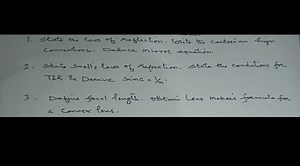 1. State the laws of reflection. Write the cartesian sign
Conventions. Deduce mirror equation.
2. State Snell's law of refraction. State the conditions for
TIR & Derive SinC = 1/n.
3. Define focal length. Obtain Lens Maker's formula for
a Convex lens.